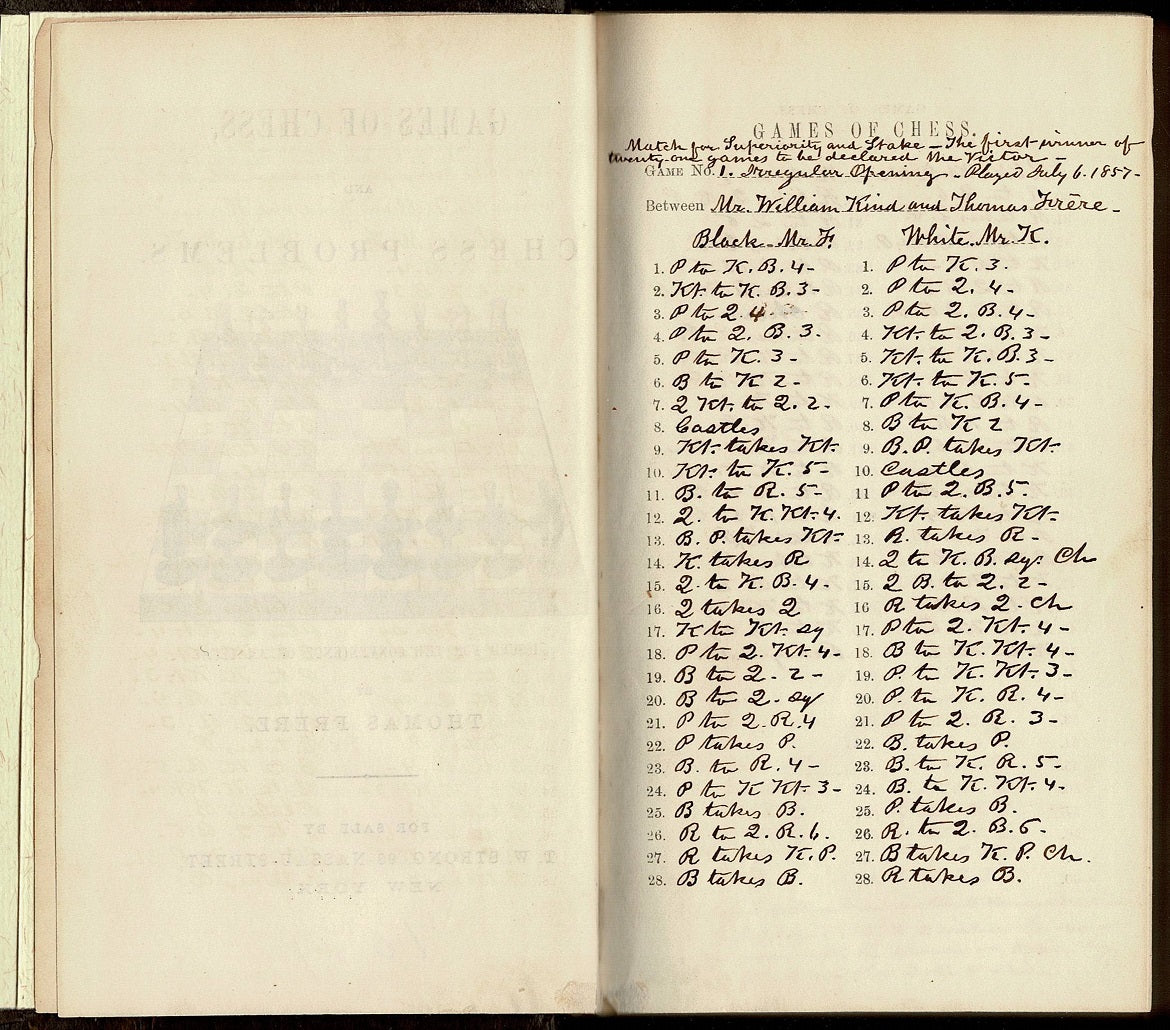 GAMES OF CHESS.
Match for Superiority and Stake – The first winner of
twenty-one games to be declared the Victor –
GAME No. 1. Irregular Opening – Played July 6. 1857-
Between Mr. William Kind and Thomas Frère –
Black – Mr. F. White Mr. K.
1. P to K. B. 4- 1. P to K. 3.
2. Kt. to K. B. 3- 2. P to Q. 4-
3. P to Q 4 3. P to Q. B. 4-
4. P to Q. B. 3. 4. Kt. to Q. B. 3-
5. P to K. 3- 5. Kt. to K. B. 3-
6. B to K 2- 6. Kt. to K. 5-
7. Q Kt. to Q. 2. 7. P to K. B. 4-
8. Castles 8. B to K 2
9. Kt. takes Kt. 9. B. P. takes Kt.
10. Kt. to K. 5- 10. Castles
11. B. to R. 5- 11 P to Q. B. 5.
12. Q. to K. Kt. 4. 12. Kt. takes Kt.
13. B. P. takes Kt. 13. R. takes R-
14. K. takes R 14. Q to K. B. sq. Ch
15. Q. to K. B. 4- 15. Q B. to Q. 2-
16. Q takes Q 16 R takes Q. Ch
17. K to Kt. sq 17. P to Q. Kt. 4-
18. P to Q. Kt. 4- 18. B to K. Kt. 4-
19. B to Q. 2- 19. P. to K. Kt. 3-
20. B to Q. sq 20. P. to K. R. 4-
21. P to Q. R. 4 21. P to Q. R. 3-
22. P takes P. 22. B. takes P.
23. B. to R. 4- 23. B. to K. R. 5-
24. P to K Kt. 3- 24. B. to K. Kt. 4-
25. B takes B. 25. P. takes B.
26. R to Q. R. 6. 26. R. to Q. B. 6-
27. R takes K. P. 27. B takes K. P. Ch.
28. B takes B. 28. R takes B.